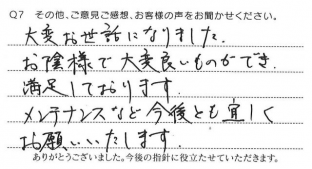 Q7 その他、ご意見ご感想、お客様の声をお聞かせください。
大変お世話になりました.
お陰様で大変良いものができ.
満足しております.
メンテナンスなど今後とも宜しく
お願いいたします.
ありがとうございました。今後の指針に役立たせていただきます。